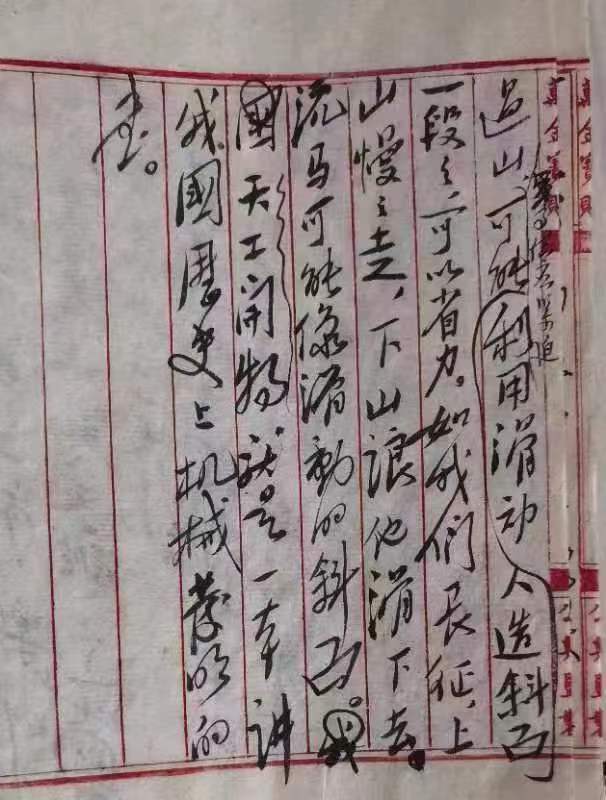 過山、可能利用滑动人造斜凸
一段之可以省力。如我们長征,上
山慢之走,下山讓他滑下去。
流马可能像滑動的斜凸。我
國天工開物就是一本讲
我國歷史上机械發明的
書。